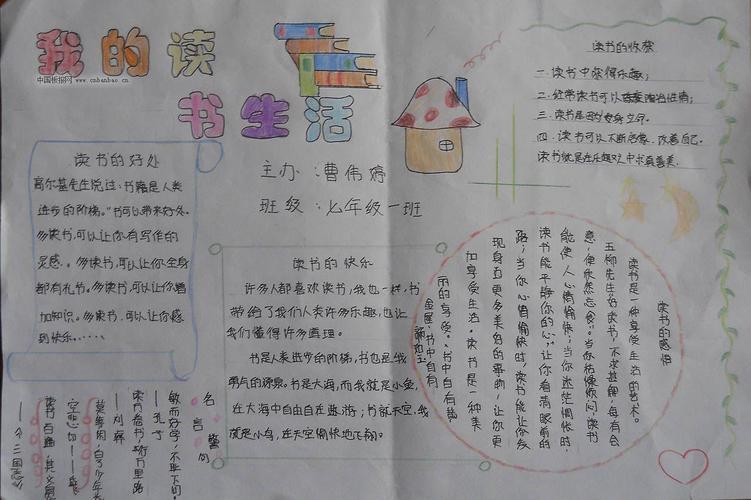 我的读
书生活
中国板报网
www.cnbanbao.cn
主办：曹伟婷
班级：七年级一班
读书的好处
高尔基先生说过：书籍是人类
进步的阶梯。"书可以带来好处。
多读书，可以让你有写作的
灵感。多读书，可以让你全身
都有礼节。多读书，可以让你增
加知识。多读书，可以让你感
到快乐。……
读书的快乐
许多人都喜欢读书，我也一样，书
带给了我们人类许多乐趣，也让
我们懂得许多真理。
书是人类进步的阶梯，书也是我
勇气的源泉。书是大海，而我就是小鱼，
在大海中自由自在遨游；书就天空，我
就是小鸟，在天空愉快地飞翔。
读书的收获
一.读书中获得乐趣；
二.经常读书可以
三.读书是
四.读书可以不断 改善自己。
读书就是在乐趣 中求真善美。
读书的感悟
读书是一种享受生活的艺术。
五柳先生"好读书，不求甚解，每有会
意，便欣然忘食"。当你枯燥烦闷，读书
能使人心情愉快；当你迷茫惆怅时，
读书能平静你的心，让你看清眼前的
路；当你心情愉快时，读书能让你发
现身边更多美好的事物，让你更
加享受生活。读书是一种美
丽的享受。"书中自有黄
金屋，书中自有
颜如玉
名言警句
敏而好学，不耻下问。
——孔子
读书倍书 行万里路
——刘彝
莫等闲，白了少年头
空悲切——岳飞
读书百遍，其义自见
——《三国志》